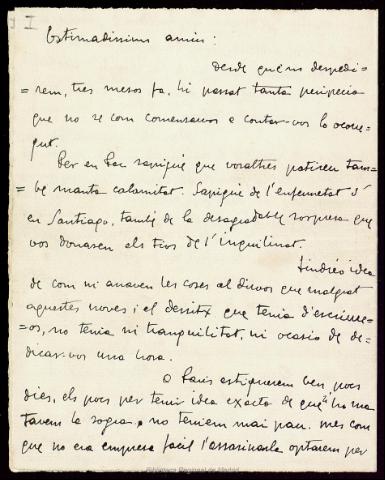 I
Estimadissims amics:
Desde que'ns despedi-
=rem, tres mesos fa, hi passat tanta peripecia
que no se com comensarvos a contar-vos lo ocorre-
gut.
Per en Pau sapigué que vosaltres patiren tam-
=be manta calamitat. Sapigué de l'enfermetat d'
en Santiago, també de la desagradable sorpresa que
vos donaren els tios de l'inquilinat.
Tindréo idea
de com ni anaven les coses al dirvos que malgrat
aquestes noves i el desitx que tenia d'escriure=
=os, no tenia ni tranquilitat, ni ocasio de de-
dicar-vos una hora.
A Paris estiguerem ben pocs
dies, els pocs per tenir idea exacta de que si no ma-
tavem la sogra, no teniem mai pau. Mes com
que no era empresa facil l'assasinarla optarem per
Biblioteca Regional de Madrid